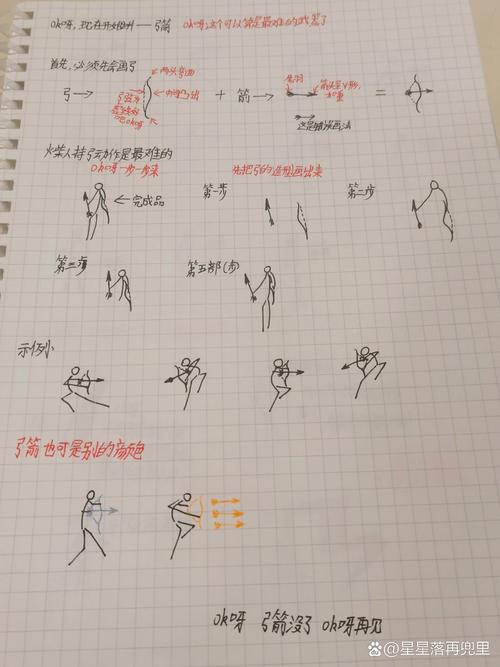 ok呀，现在开始教——弓箭 ok呀，这个可以算是最难的武器了
首先，必须先会画弓
弓→ 两头弯曲 中间凸出 + 箭→ 尾羽 箭头呈V形，加重 =
这是错误画法
火柴人持弓动作是最难的
ok呀一步一步来 先把弓的造型画出来
←完成品 第一步 第二步
第三步 第五部(步)
示例
弓箭也可是别的颜色
ok呀 弓箭没了 ok呀再见
@星星落再兜里